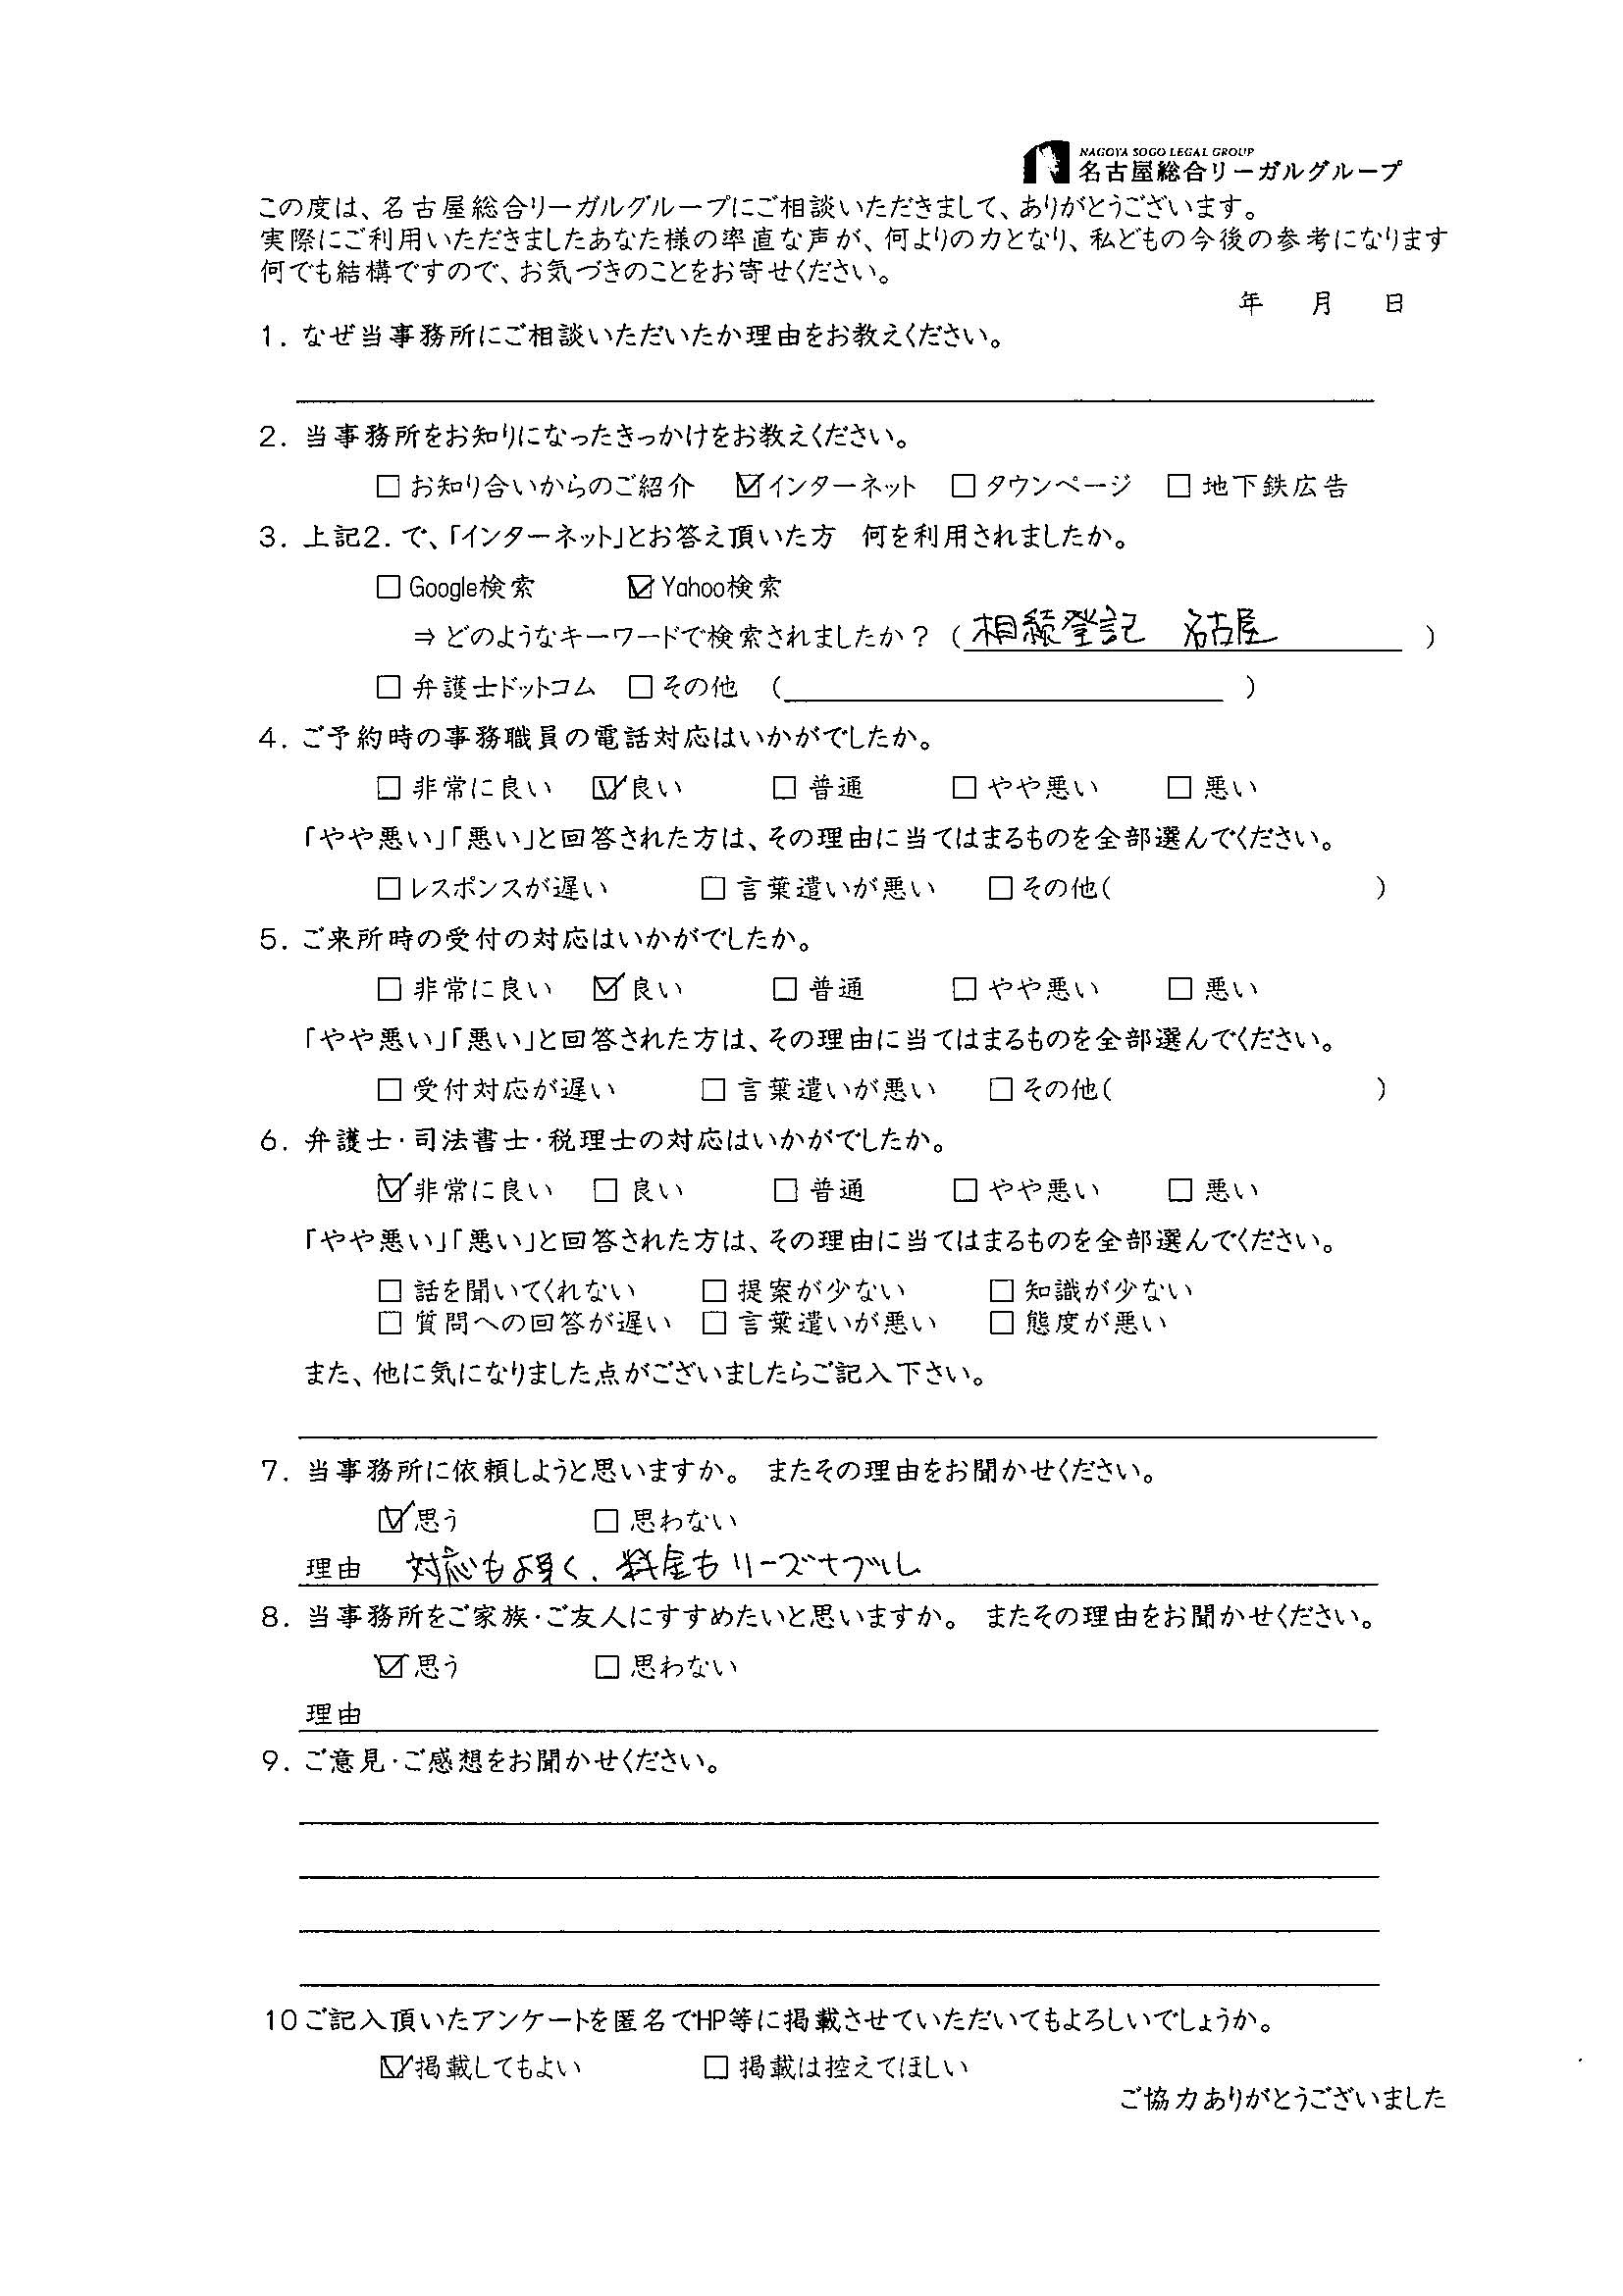 NAGOYA SOGO LEGAL GROUP
名古屋総合リーガルグループ
この度は、名古屋総合リーガルグループにご相談いただきまして、ありがとうございます。
実際にご利用いただきましたあなた様の率直な声が、何よりの力となり、私どもの今後の参考になります
何でも結構ですので、お気づきのことをお寄せください。
年 月 日
1. なぜ当事務所にご相談いただいたか理由をお教えください。
2. 当事務所をお知りになったきっかけをお教えください。
□ お知り合いからのご紹介 ☑インターネット □ タウンページ □ 地下鉄広告
3. 上記2. で、「インターネット」とお答え頂いた方 何を利用されましたか。
□ Google検索 ☑ Yahoo検索
⇒ どのようなキーワードで検索されましたか？ (相続登記 名古屋 )
□ 弁護士ドットコム □ その他 ( )
4. ご予約時の事務職員の電話対応はいかがでしたか。
□ 非常に良い ☑良い □ 普通 □ やや悪い □ 悪い
「やや悪い」「悪い」と回答された方は、その理由に当てはまるものを全部選んでください。
□ レスポンスが遅い □ 言葉遣いが悪い □ その他( )
5. ご来所時の受付の対応はいかがでしたか。
□ 非常に良い ☑良い □ 普通 □ やや悪い □ 悪い
「やや悪い」「悪い」と回答された方は、その理由に当てはまるものを全部選んでください。
□ 受付対応が遅い □ 言葉遣いが悪い □ その他( )
6. 弁護士・司法書士・税理士の対応はいかがでしたか。
☑非常に良い □ 良い □ 普通 □ やや悪い □ 悪い
「やや悪い」「悪い」と回答された方は、その理由に当てはまるものを全部選んでください。
□ 話を聞いてくれない □ 提案が少ない □ 知識が少ない
□ 質問への回答が遅い □ 言葉遣いが悪い □ 態度が悪い
また、他に気になりました点がございましたらご記入下さい。
7. 当事務所に依頼しようと思いますか。 またその理由をお聞かせください。
☑思う □ 思わない
理由 対応も良く、料金もリーズナブル
8. 当事務所をご家族・ご友人にすすめたいと思いますか。 またその理由をお聞かせください。
☑思う □ 思わない
理由
9. ご意見・ご感想をお聞かせください。
10ご記入頂いたアンケートを匿名でHP等に掲載させていただいてもよろしいでしょうか。
☑掲載してもよい □ 掲載は控えてほしい
ご協力ありがとうございました